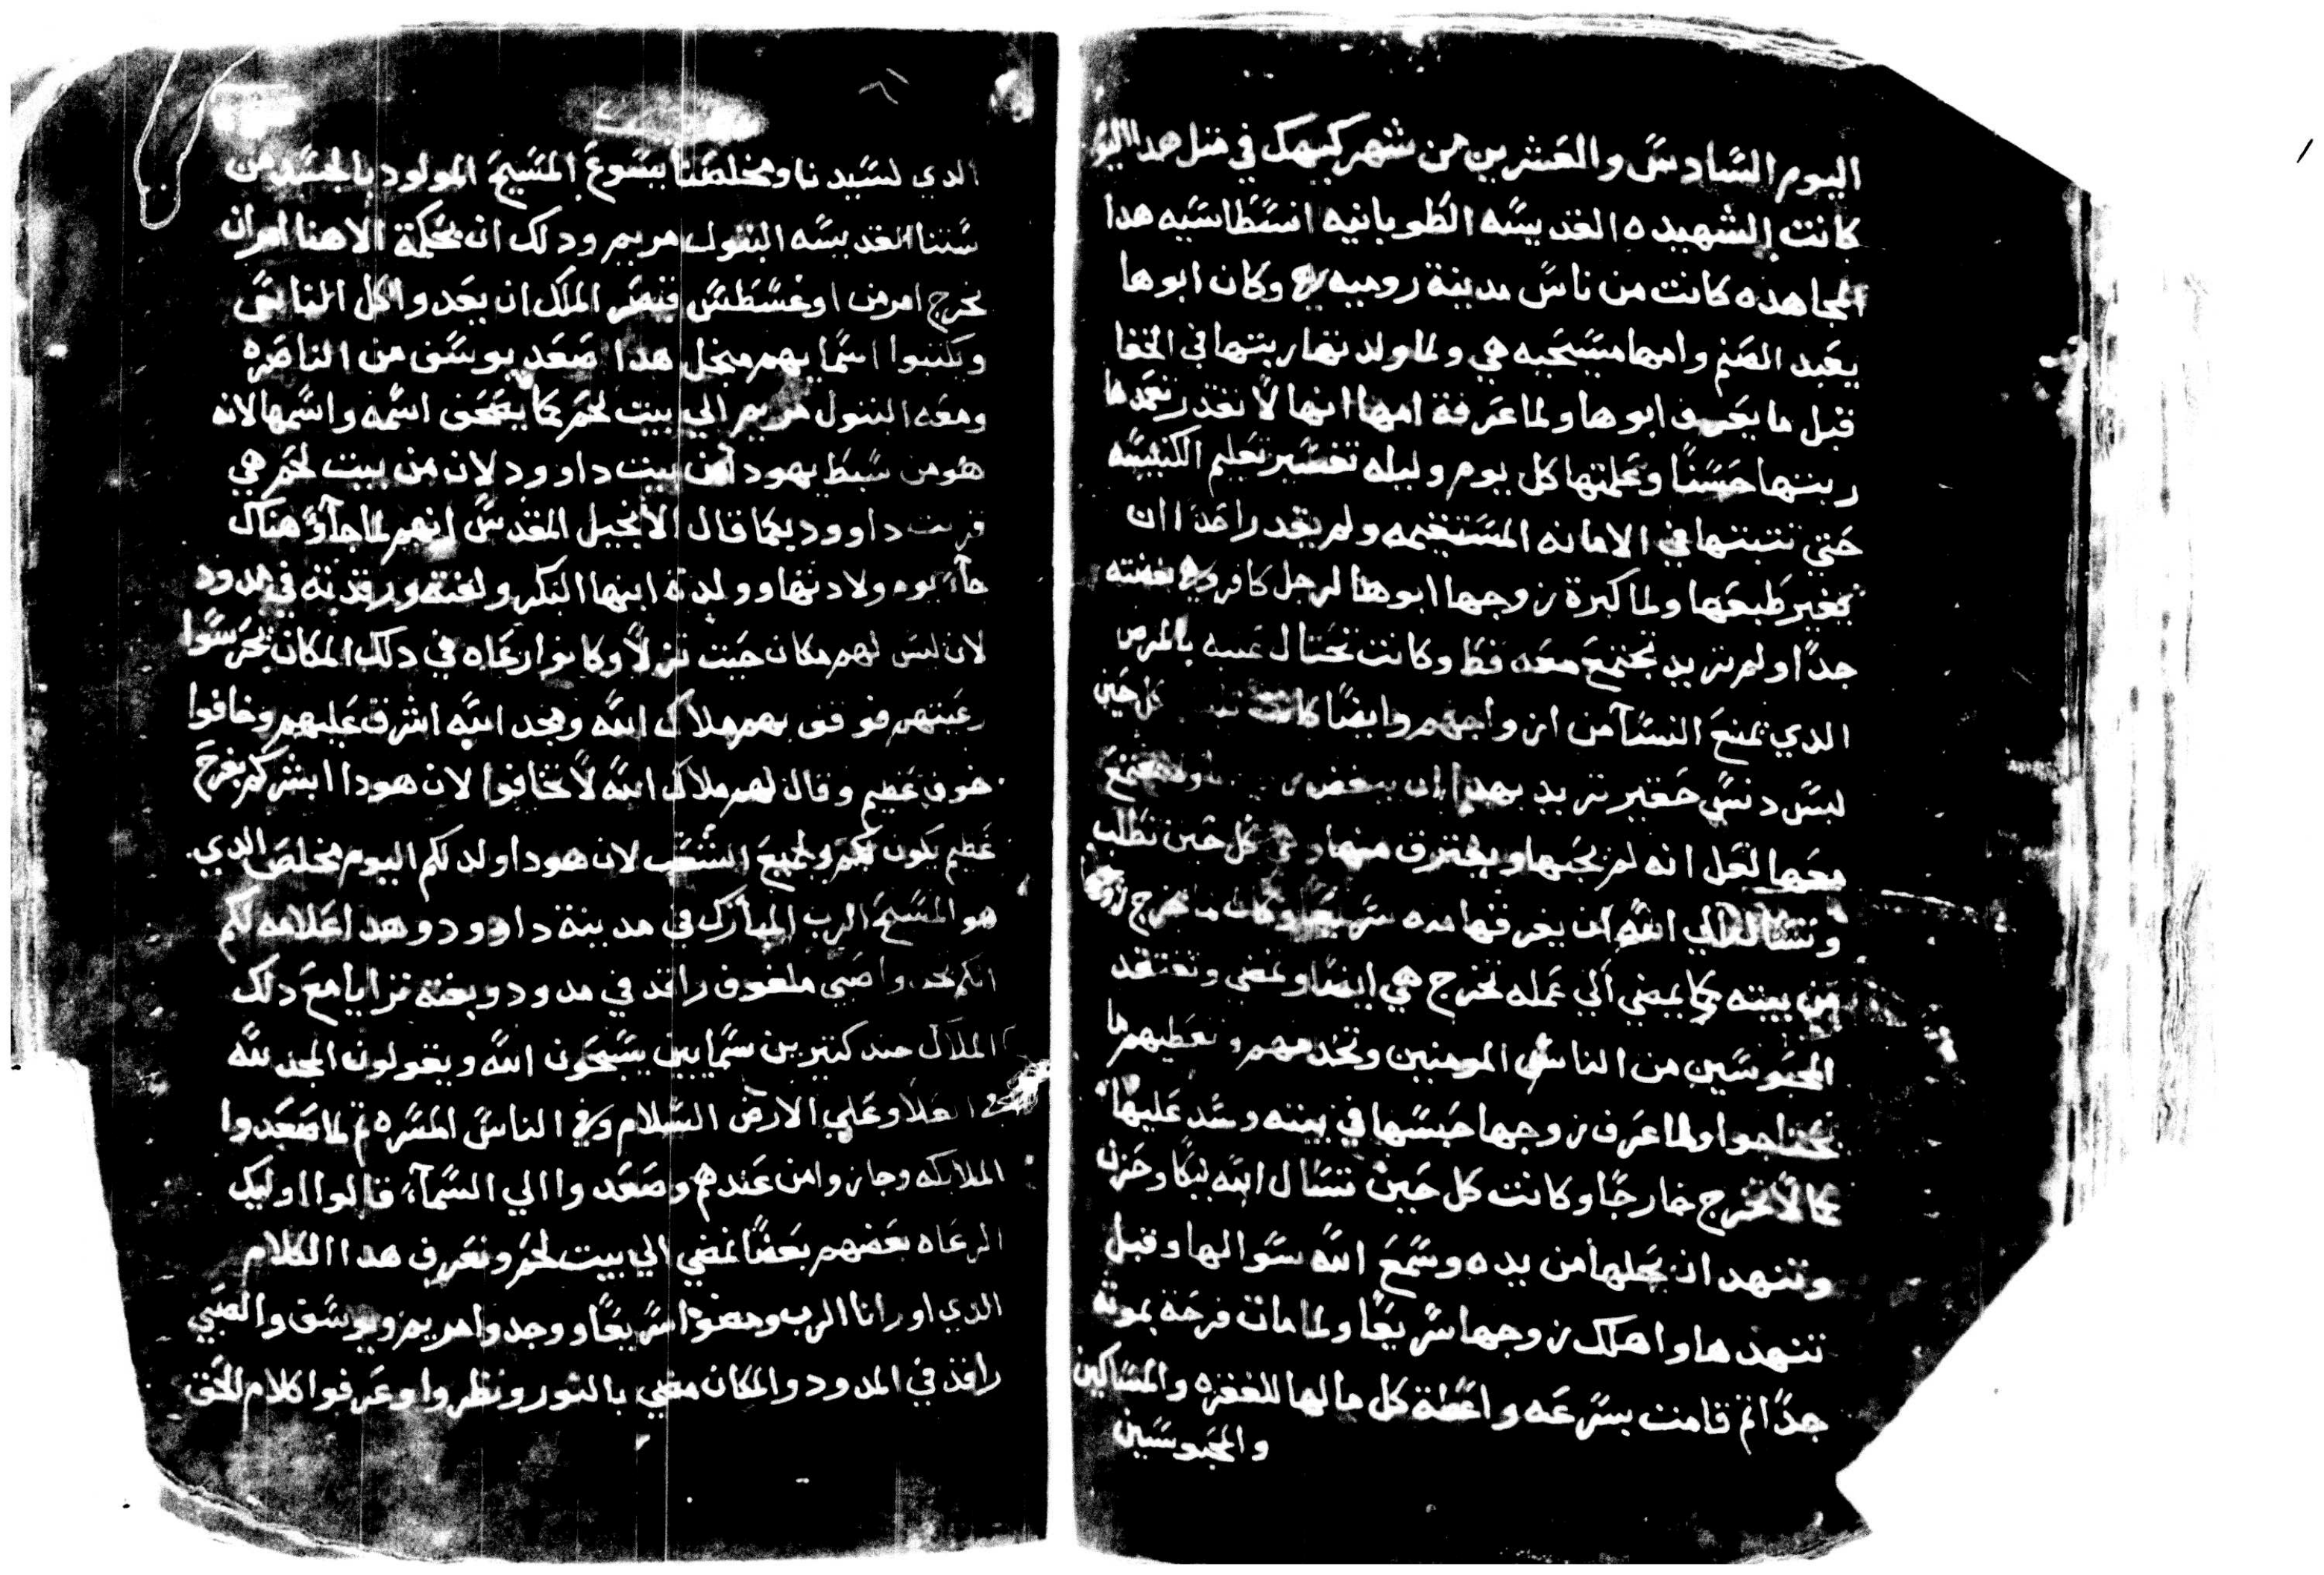 اليوم السّادسّ والعَشرين من شهر كيهك في متل هدا اليو
كانت الشهيده القديسّه الطوبانيه انسّطاسّيه هدا
المجاهده كانت من ناسّ مدينة روميه وكان ابوها
يعَبد الصَنم وامها مسَيحَيه هي ولما ولدتها ربتها في الخفا
قبل ما يعَرف ابوها ولما عَرفة امها انها لاً تقدر تعَمدها
ربتها حَسَنًا وعَلمتها كل يوم وليله تفسّير تعَليم الكنيسّه
حَتي تتبتها في الامانه المسَتقيمه ولم يقدر احَدًا ان
يغير طَبعَها ولما كبرة زوجها ابوها لرجل كافر وهي بغضته
جدًا ولم تريد تجتمعَ معَه قط وكانت تحَتال عَنه بالمرض
الدي تمنعَ النسّآ من ازواجهم وايضًا كانت كل حَين
لبسّ دنسّ حَقير تريد بهدا ان يبغض
معَها لعَل انه لم يحَبها ويفترق منها وهي كل حَين تطَلب
وتسّال الي اللّه ان يفرقها منه سّريعًا وكان ما يخرج زوجها
من بيته كما يمضي الي عَمله تخرج هي ايضًا وتمضي وتفتقد
المحَبوسَين من الناسّ المومنين وتخدمهم وتعَطيهم ما
يحَتاجوا ولما عَرف زوجها حَبسّها في بيته وسَد عَليها
كما لاً تخرج خارجًا وكانت كل حَين تسّال اللّه ببكًا وحَزن
وتنهد ان يحَلها من يده وسّمعَ اللّه سّوالها وقبل
تنهدها واهلك زوجها سّريعًا ولما مات فرحَة بموته
جدًا تم قامت بسّرعَه واعَطة كل مالها للفقره والمسّاكين
والمحَبوسَين
الدي لسّيدنا ومخلصَنا يسّوعَ المسَيحَ المولود بالجسّد من
سّتنا القديسّه البتول مريم ودلك ان بحَكمة الاهنا امر ان
يخرج امر من اوغسّطَسّ قيصَر الملك ان يعَدوا كل الناسّ
ويكتبوا اسّمايهم من اجل هدا صَعَد يوسّف من الناصَره
ومعَه البتول مريم الي بيت لحَم كما يصَحَف اسّمه واسّمها لانه
هو من سّبط يهودا من بيت داوود لان من بيت لحَم هي
قريت داوود كما قال الانجيل المقدسّ انهم لما جآوً هناك
جآءً يوم ولادتها وولدة ابنها البكر ولفته ورقدته في مدود
لان ليسّ لهم مكان حَيت نزلاً وكانوا رعَاه في دلك المكان يحَرسّوا
رعَيتهم فوقف بهم ملاك اللّه ومجد اللّه اشرق عَليهم وخافوا
خوف عَظيم وقال لهم ملاك اللّه لاً تخافوا لان هودا ابشركم بفرحَ
عَظيم يكون لكم ولجميعَ الشعَب لان هودا ولد لكم اليوم مخلصَ الدي
هو المسّيحَ الرب المبارك في مدينة داوود وهدا عَلامه لكم
انكم تجدوا صَبي ملفوف راقد في مدود وبغتة ترايا معَ دلك
الملاك جند كتيرين سّمايين يسّبحَون اللّه ويقولون المجد للّه
في العَلا وعَلي الارض السّلام وفي الناسّ المسّره تم لما صَعَدوا
الملايكه وجازوا من عَندهم وصَعَدوا الي السّمآءً قالوا اوليك
الرعَاه بعَضهم بعَضًا نمضي الي بيت لحَم ونعَرف هدا الكلام
الدي اورانا الرب ومضوا سّريعًا ووجدوا مريم ويوسّف والصَبي
راقد في المدود والمكان مضي بالنور ونظروا وعَرفوا كلام الحَق